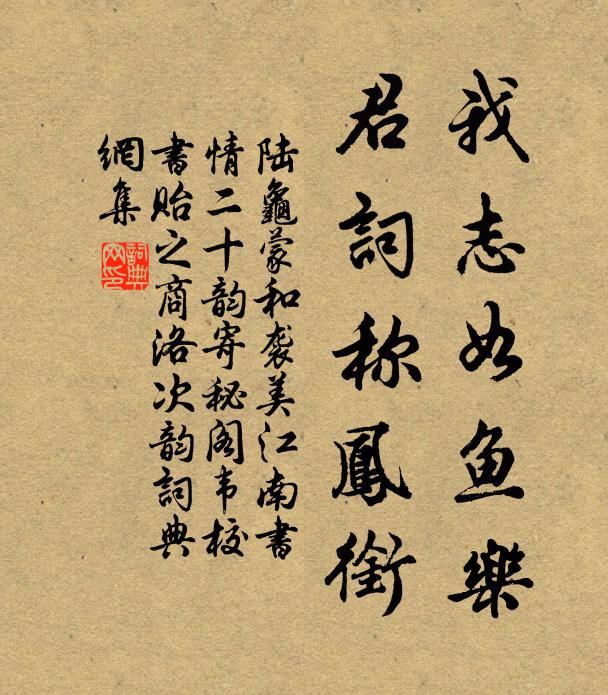 我志如鱼樂
君詞称鳳銜
陆龜蒙和袭美江南書
情二十韵寄秘阁韦校
書贻之商洛次韵詞典
網集
詞典
网印